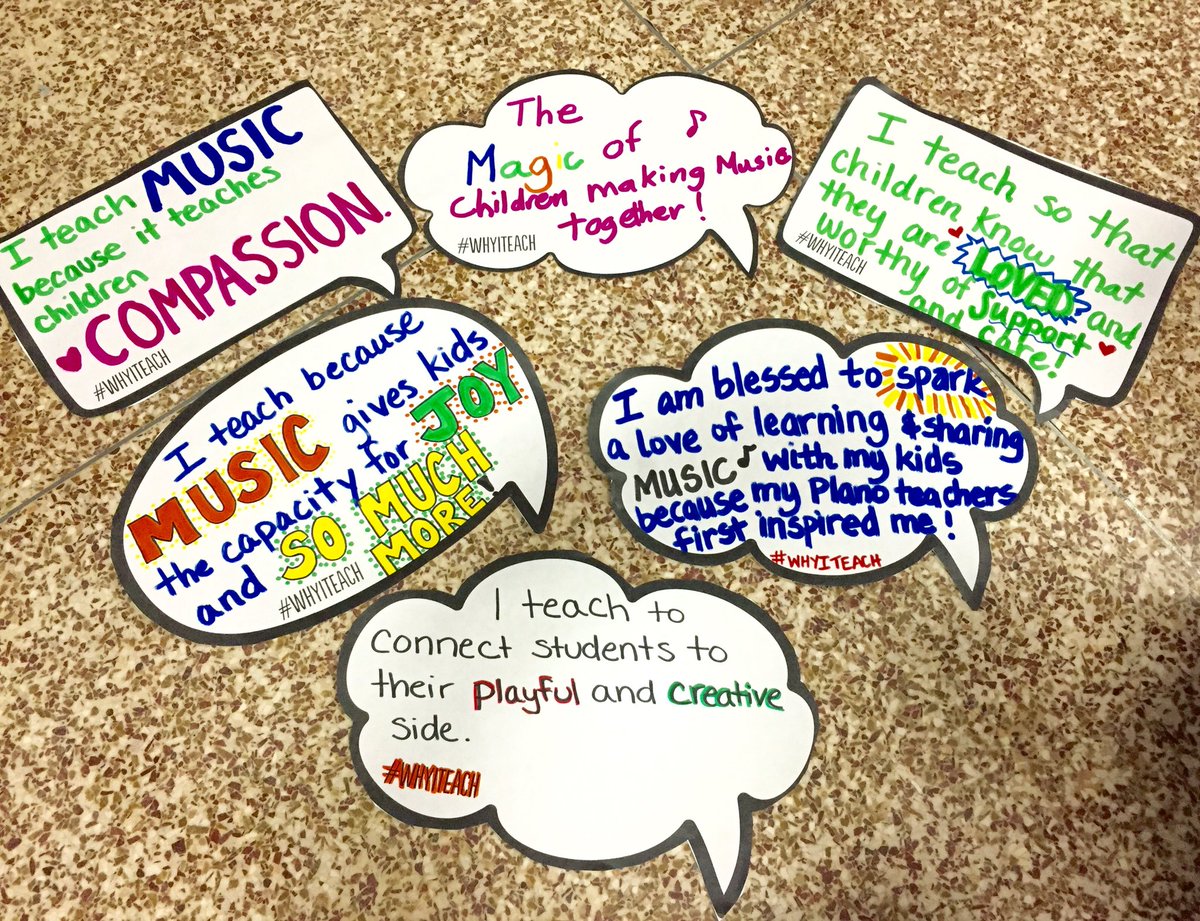 I teach MUSIC
because it teaches
children
COMPASSION.
#WHYITEACH
The
Magic of
Children making Music
together!
#WHYITEACH
I teach so that
children know that
they are LOVED and
worthy of Support
and Care!
#WHYITEACH
I teach because
MUSIC gives kids
the capacity for JOY
and SO MUCH
MORE
#WHYITEACH
I am blessed to spark
a love of learning & sharing
MUSIC with my kids
because my Plano teachers
first inspired me!
#WHYITEACH
I teach to
connect students to
their playful and creative
side.
#WHYITEACH